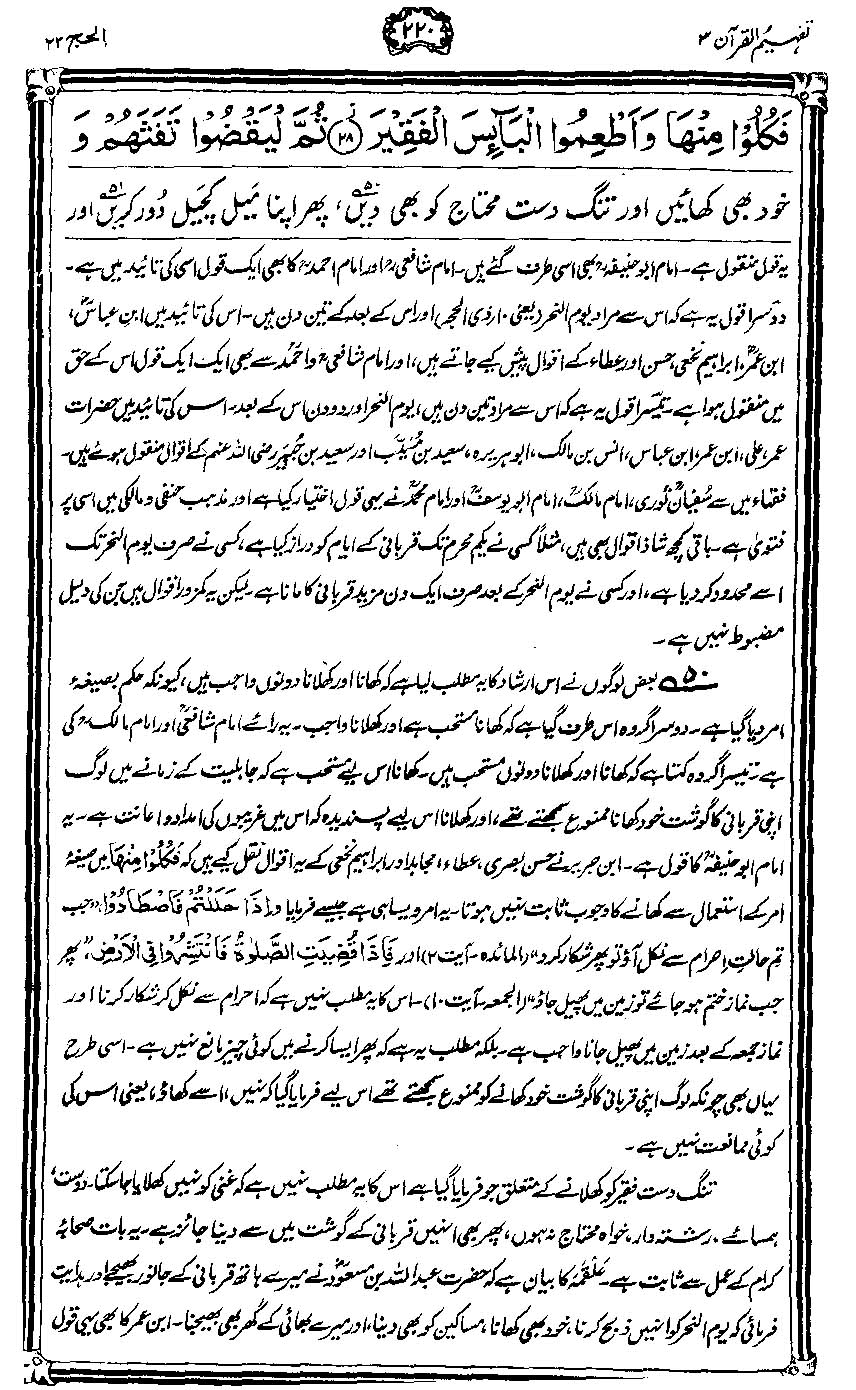 تفہیم القرآن ۳
۲۲۰
الحج ۲۲
فَكُلُوْا مِنْهَا وَاَطْعِمُوا الْبَآئِسَ الْفَقِيْرَ ۲۸ ثُمَّ لْيَقْضُوْا تَفَثَهُمْ وَ
خود بھی کھائیں اور تنگ دست محتاج کو بھی دیں۵۰، پھر اپنا میل کچیل دُور کریں۵۱ اور
یہ قول منقول ہے۔ امام ابوحنیفہؒ بھی اسی طرف گئے ہیں۔ امام شافعیؒ اور امام احمدؒ کا بھی ایک قول اسی کی تائید میں ہے۔
دوسرا قول یہ ہے کہ اس سے مراد یوم النحر (یعنی ۱۰ ذی الحجہ) اور اس کے بعد کے تین دن ہیں۔ اس کی تائید میں ابن عباسؓ،
ابن عمرؓ، ابراہیم نخعی، حسن اور عطاء کے اقوال پیش کیے جاتے ہیں، اور امام شافعیؒ و احمدؒ سے بھی ایک ایک قول اس کے حق
میں منقول ہوا ہے۔ تیسرا قول یہ ہے کہ اس سے مراد تین دن ہیں، یوم النحر اور دو دن اس کے بعد۔ اس کی تائید میں حضرات
عمر، علی، ابن عمر، ابن عباس، انس بن مالک، ابوہریرہ، سعید بن مُسَیَّب اور سعید بن جُبَیر رضی اللہ عنہم کے اقوال منقول ہوئے ہیں۔
فقہاء میں سے سُفیان ثَوریؒ، امام مالکؒ، امام ابو یوسفؒ اور امام محمدؒ نے یہی قول اختیار کیا ہے اور مذہب حنفی و مالکی میں اسی پر
فتویٰ ہے۔ باقی کچھ شاذ اقوال بھی ہیں، مثلاً کسی نے یکم محرم تک قربانی کے ایام کو دراز کیا ہے، کسی نے صرف یوم النحر تک
اسے محدود کر دیا ہے، اور کسی نے یوم النحر کے بعد صرف ایک دن مزید قربانی کا مانا ہے۔ لیکن یہ کمزور اقوال ہیں جن کی دلیل
مضبوط نہیں ہے۔
۵۰ بعض لوگوں نے اس ارشاد کا یہ مطلب لیا ہے کہ کھانا اور کھلانا دونوں واجب ہیں، کیونکہ حکم بصیغۂ
امر دیا گیا ہے۔ دوسرا گروہ اس طرف گیا ہے کہ کھانا مستحب ہے اور کھلانا واجب۔ یہ رائے امام شافعیؒ اور امام مالکؒ کی
ہے۔ تیسرا گروہ کہتا ہے کہ کھانا اور کھلانا دونوں مستحب ہیں۔ کھانا اس لیے مستحب ہے کہ جاہلیت کے زمانے میں لوگ
اپنی قربانی کا گوشت خود کھانا ممنوع سمجھتے تھے، اور کھلانا اس لیے پسندیدہ کہ اس میں غریبوں کی امداد و اعانت ہے۔ یہ
امام ابوحنیفہؒ کا قول ہے۔ ابن جریر نے حسن بصری، عطاء، مجاہد اور ابراہیم نخعی کے یہ اقوال نقل کیے ہیں کہ فَكُلُوْا مِنْهَا میں صیغۂ
امر کے استعمال سے کھانے کا وجوب ثابت نہیں ہوتا۔ یہ امر ویسا ہی ہے جیسے فرمایا وَاِذَا حَلَلْتُمْ فَاصْطَادُوْا، "جب
تم حالتِ احرام سے نکل آؤ تو پھر شکار کرو" (المائدہ۔ آیت ۲) اور فَاِذَا قُضِيَتِ الصَّلٰوةُ فَانْتَشِرُوْا فِي الْاَرْضِ، "پھر
جب نماز ختم ہو جائے تو زمین میں پھیل جاؤ" (الجمعہ۔ آیت ۱۰)۔ اس کا یہ مطلب نہیں ہے کہ احرام سے نکل کر شکار کرنا اور
نماز جمعہ کے بعد زمین میں پھیل جانا واجب ہے۔ بلکہ مطلب یہ ہے کہ پھر ایسا کرنے میں کوئی چیز مانع نہیں ہے۔ اسی طرح
یہاں بھی چونکہ لوگ اپنی قربانی کا گوشت خود کھانے کو ممنوع سمجھتے تھے اس لیے فرمایا گیا کہ نہیں، اسے کھاؤ، یعنی اس کی
کوئی ممانعت نہیں ہے۔
تنگ دست فقیر کو کھلانے کے متعلق جو فرمایا گیا ہے اس کا یہ مطلب نہیں ہے کہ غنی کو نہیں کھلایا جا سکتا۔ دوست،
ہمسائے، رشتہ دار، خواہ محتاج نہ ہوں، پھر بھی انہیں قربانی کے گوشت میں سے دینا جائز ہے۔ یہ بات صحابۂ
کرام کے عمل سے ثابت ہے۔ عَلْقَمہ کا بیان ہے کہ حضرت عبداللہ بن مسعودؓ نے میرے ہاتھ قربانی کے جانور بھیجے اور ہدایت
فرمائی کہ یوم النحر کو انہیں ذبح کرنا، خود بھی کھانا، مساکین کو بھی دینا، اور میرے بھائی کے گھر بھی بھیجنا۔ ابن عمر کا بھی یہی قول